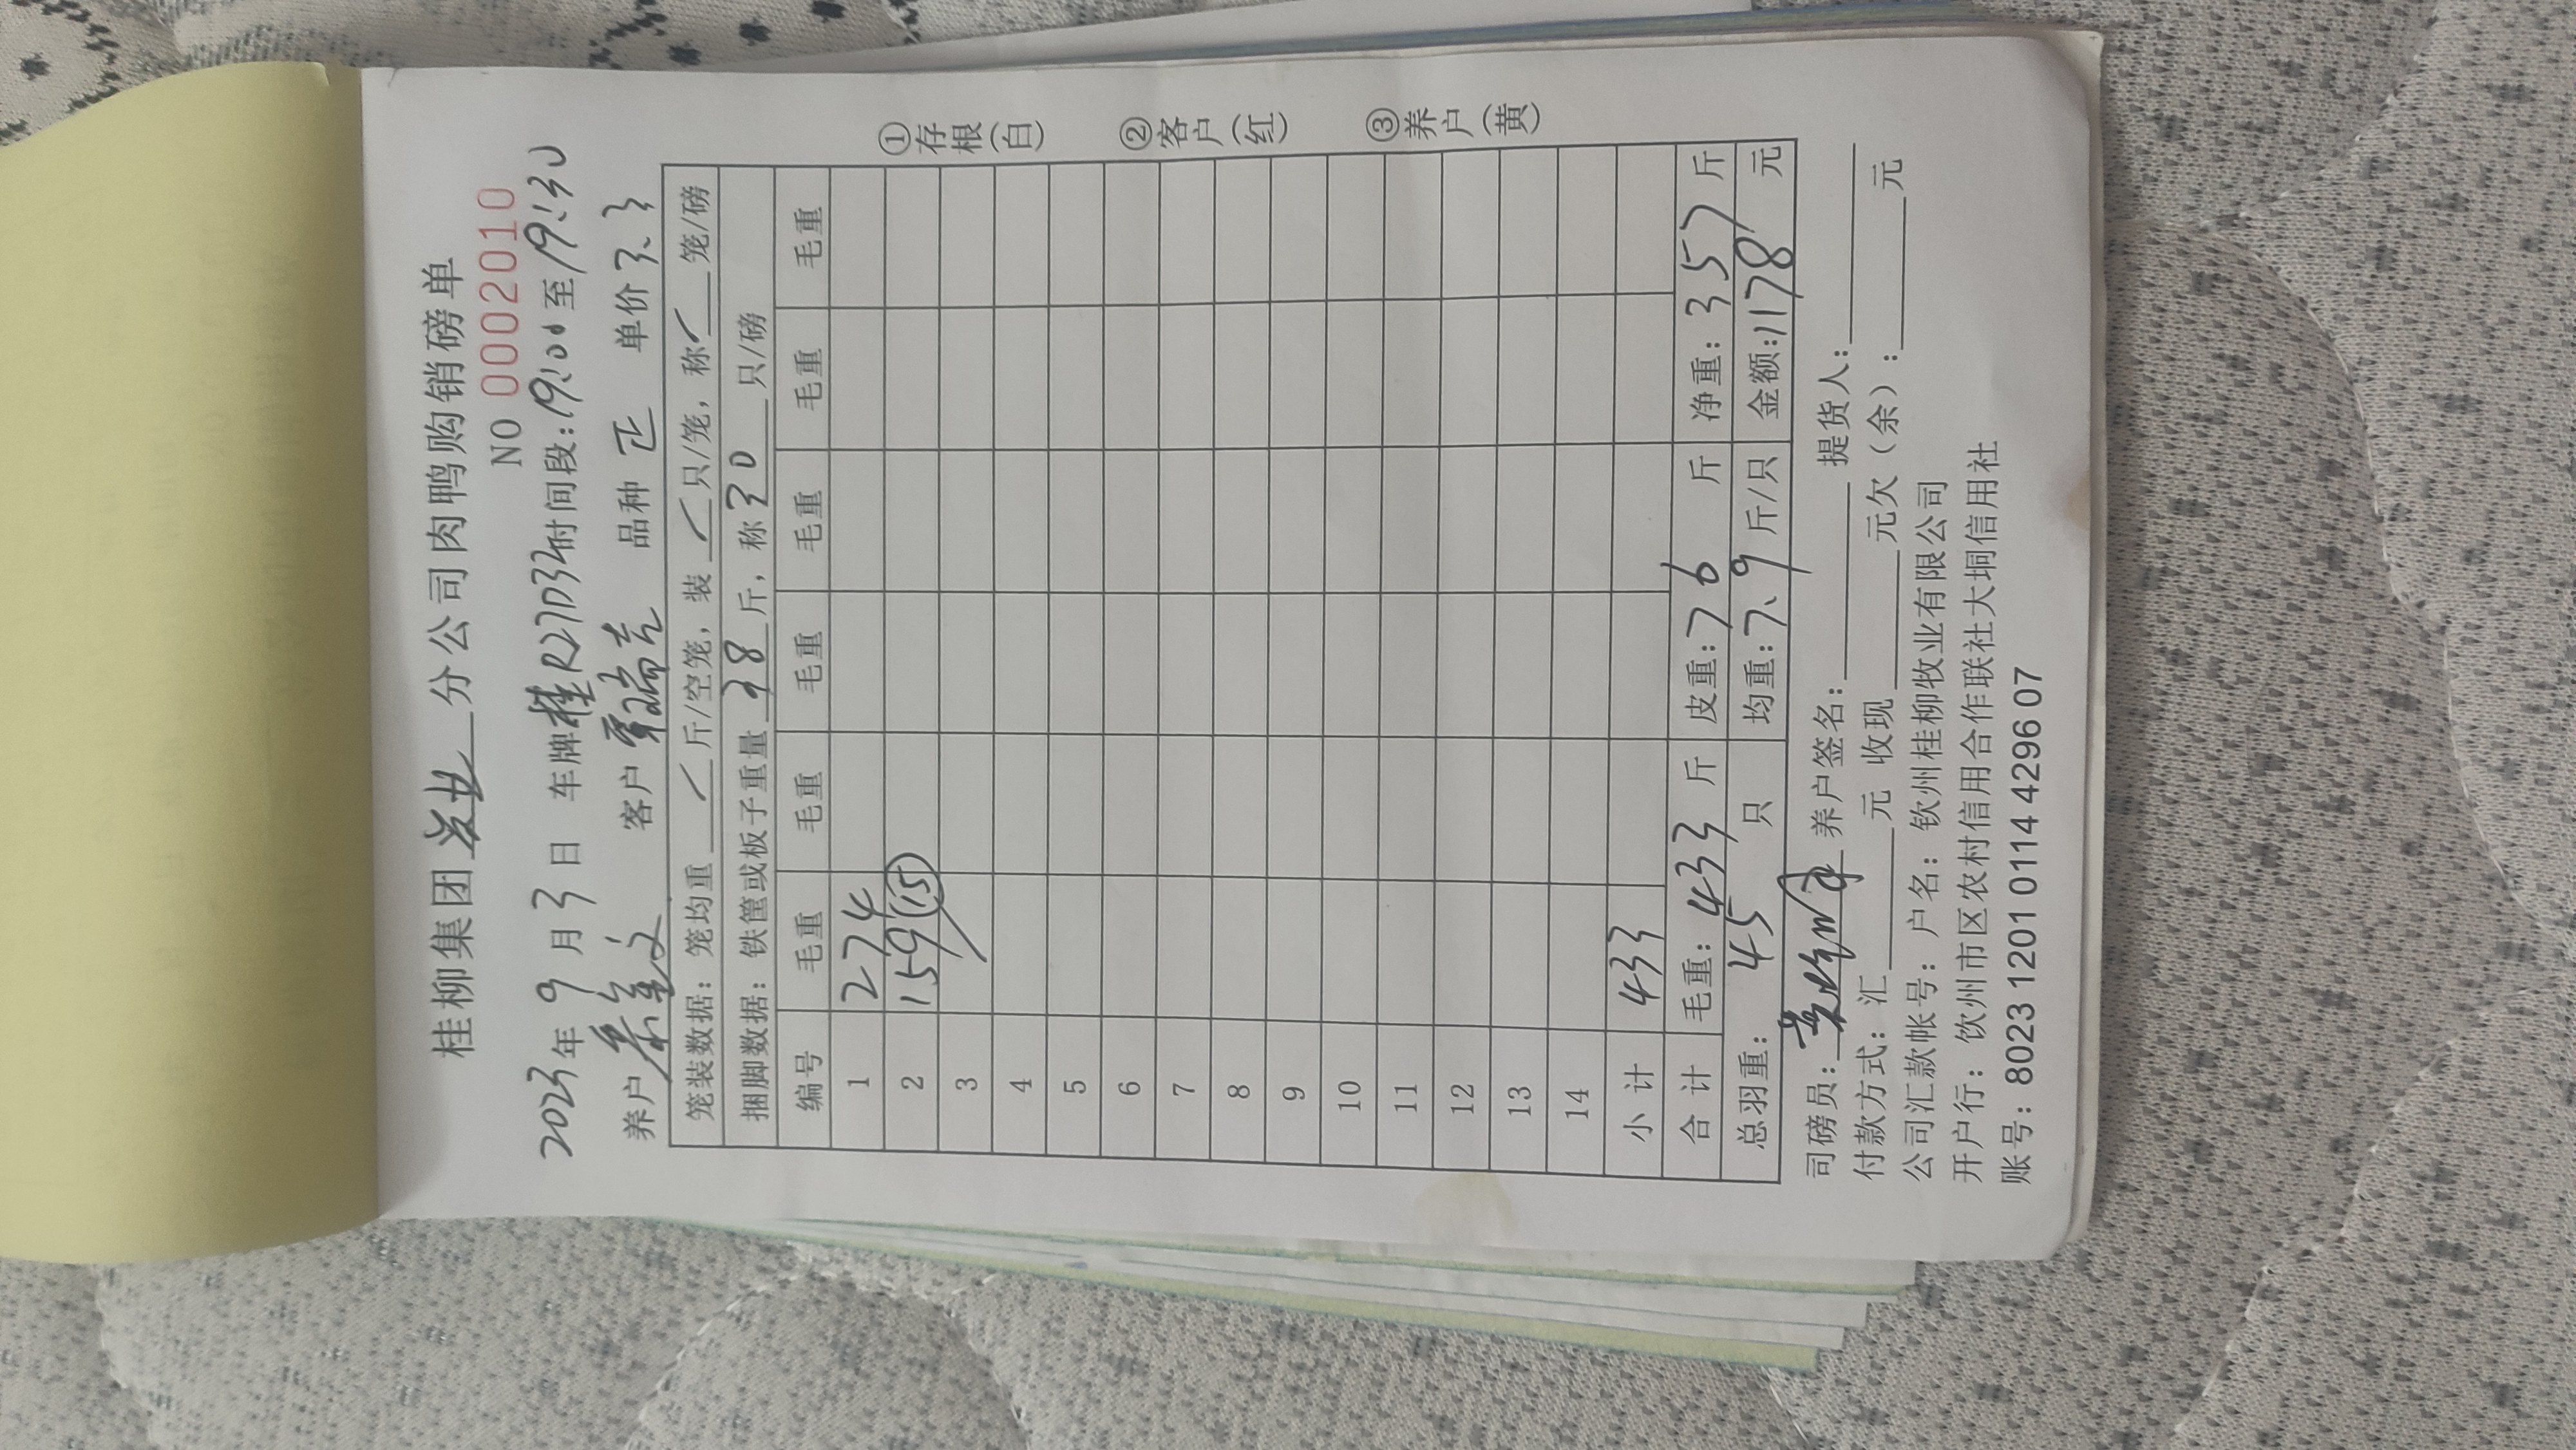 桂柳集团 分公司肉鸭购销磅单
NO 0002010
2023年9月3日 车牌桂R27D34时间段:19:00至19:30
养户 客户覃瑞吉 品种正 单价3.3
笼装数据: 笼均重 / 斤/空笼, 装 / 只/笼, 称 / 笼/磅
捆脚数据: 铁筐或板子重量 38 斤, 称 30 只/磅
编号 毛重 毛重 毛重 毛重 毛重 毛重
1 274
2 159 (15)
3
4
5
6
7
8
9
10
11
12
13
14
小计 433
合计 毛重: 433 斤 皮重: 76 斤 净重: 357 斤
总羽重: 45 只 均重: 7.9 斤/只 金额: 1178 元
司磅员: 养户签名: 提货人:
付款方式: 汇 元 收现 元欠(余): 元
公司汇款帐号: 户名: 钦州桂柳牧业有限公司
开户行: 饮州市区农村信用合作联社大垌信用社
账号: 8023 1201 0114 4296 07
①存根(白)
②客户(红)
③养户(黄)